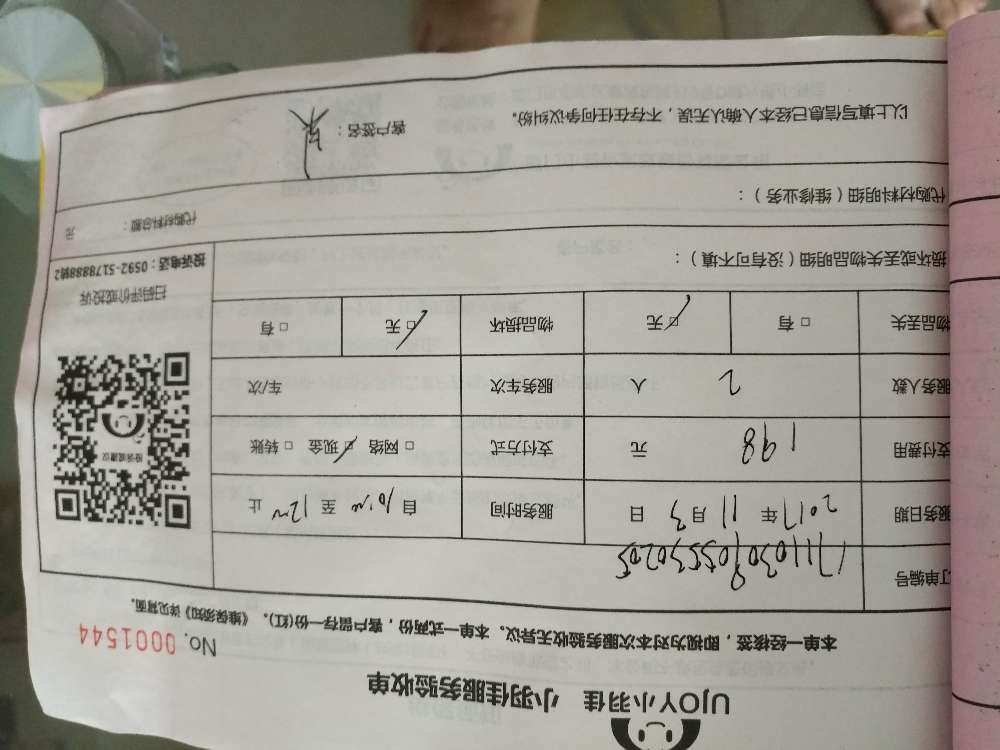 UJOY小羽佳 小羽佳服务验收单
No. 0001544
本单一经核签，即视为对本次服务验收无异议。本单一式两份，客户留存一份(红)。《维保须知》详见背面。
订单编号
服务日期 2017 年 11 月 3 日 服务时间 自 10:00 至 12:00 止
支付费用 198 元 支付方式 □ 网络 ☑ 现金 □ 转账
服务人数 2 人 服务车次 车/次
物品丢失 □ 有 ☑ 无 物品损坏 ☑ 无 □ 有
投诉或建议
扫码评价或投诉
投诉电话：0592-5178888转2
损坏或丢失物品明细（没有可不填）：
代购材料明细（维修业务）：
代购材料总额： 元
以上填写信息已经本人确认无误，不存在任何争议纠纷。 客户签名：